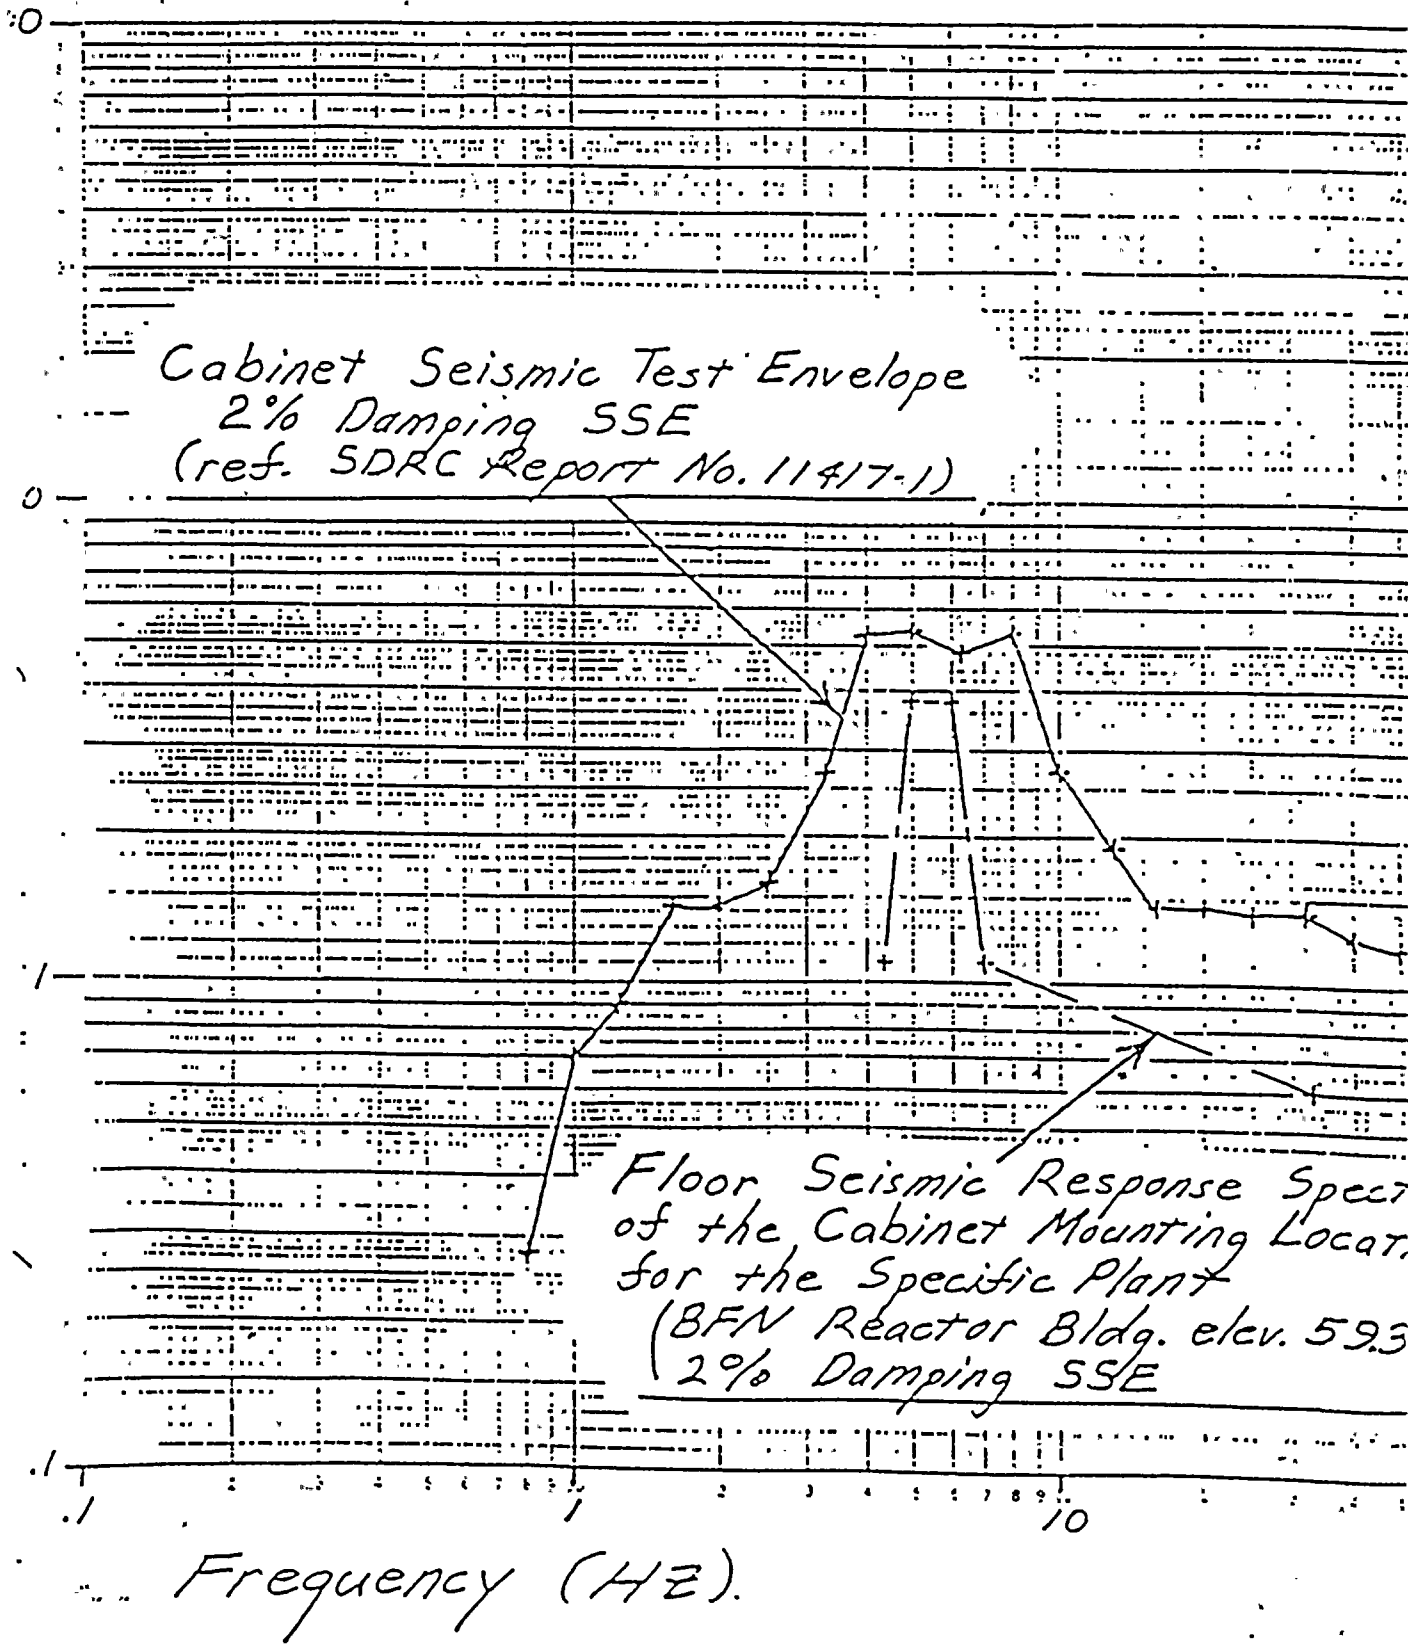 :0
Cabinet Seismic Test Envelope
2% Damping SSE
(ref. SDRC Report No. 11417-1)
0
1
Floor Seismic Response Spect
of the Cabinet Mounting Locat
for the Specific Plant
(BFN Reactor Bldg. elev. 593
2% Damping SSE
.1
2 3 4 5 6 7 8 9
.1 1 10
Frequency (HZ).